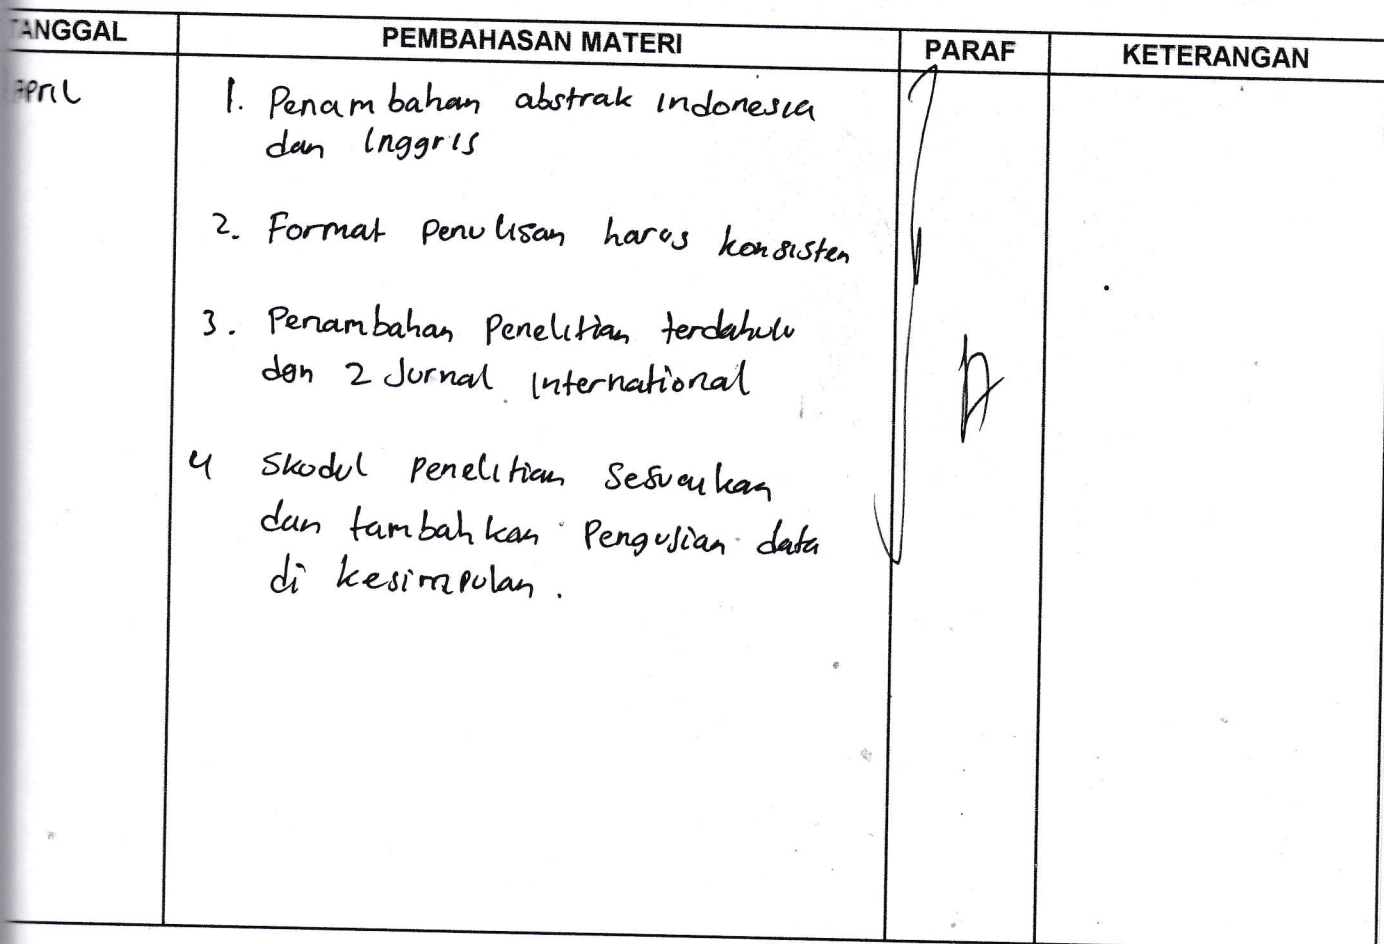 TANGGAL PEMBAHASAN MATERI PARAF KETERANGAN
April
1. Penambahan abstrak indonesia
dan Inggris
2. Format penulisan harus konsisten
3. Penambahan Penelitian terdahulu
dan 2 Jurnal International
4 Skedul penelitian Sesuaikan
dan tambahkan Pengujian data
di kesimpulan.